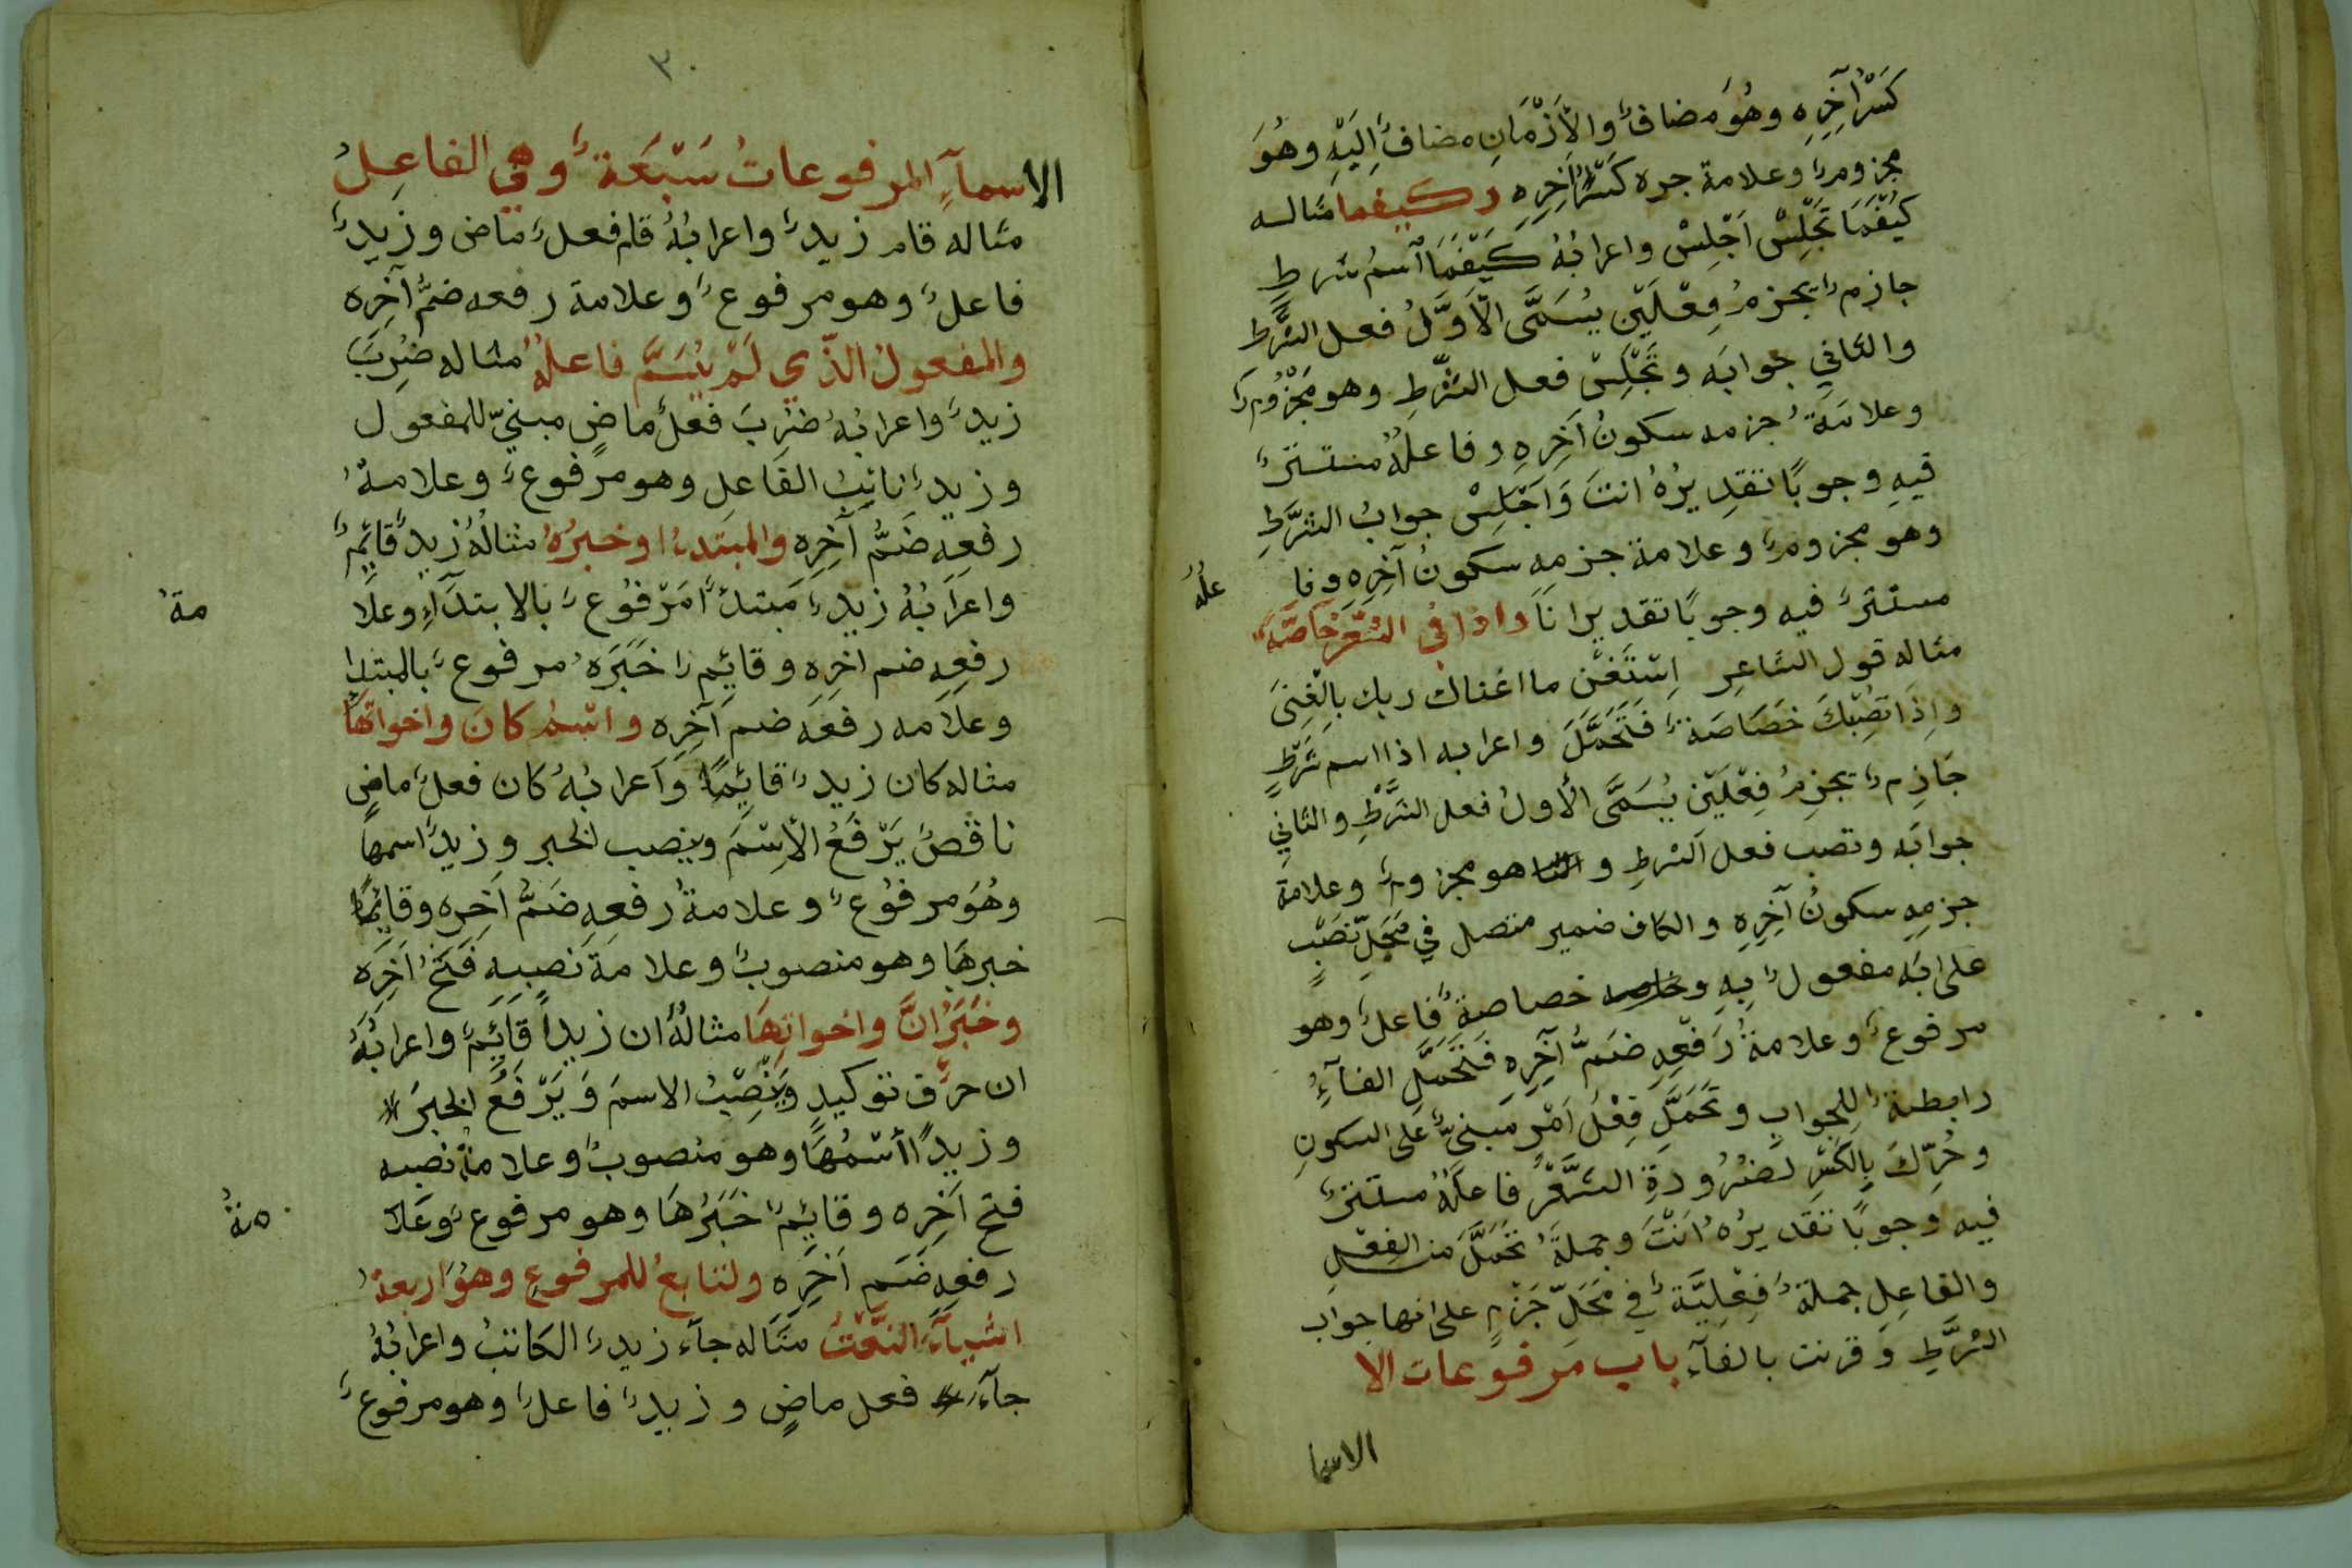 كَسْرُ آخِرِه وهُوَ مضافٌ والأَزْمَانِ مضافٌ اِلَيْهِ وهُوَ
مجزومٌ وعلامة جره كَسْرُ آخِرِهِ وكيفما مثاله
كَيْفَمَا تَجْلِسْ اَجْلِسْ واعرابُهُ كَيْفَمَا اسمُ شرطٍ
جازمٌ يجزمُ فِعْلَيْنِ يُسَمَّى الاَوَّلُ فعل الشَّرطِ
والثاني جوابَه وتَجْلِسْ فعل الشَّرْطِ وهو مَجْزُومٌ
وعلامَةُ جزمه سكونُ آخِرِهِ وفاعلُهُ مستترٌ
فيهِ وجوبًا تقدِيرُهُ انتَ وَاَجْلِسْ جوابُ الشَّرْطِ
وهو مجزومٌ وعلامة جزمِهِ سكونُ آخِرِهِ وفا
علُهُ
مستترٌ فيه وجوبًا تقديرا نَا واذا في الشِّعْرِ خَاصَّةً
مثاله قول الشاعِرِ اِسْتَغْنِ ما اغناك ربك بِالْغِنَى
وَاِذَا تصِبْكَ خَصَاصَةٌ فَتَحَمَّلَ واعرابه اذا اسم شَرْطٍ
جَازِمٌ يجزِمُ فِعْلَيْنِ يُسَمَّى الأولُ فعل الشَّرْطِ والثاني
جوابَه وتصب فعل الشرطِ و هو مجزومٌ وعلامة
جزمِهِ سكونُ آخِرِهِ والكاف ضمير متصل في مَحَلِّ نَصْبٍ
على انَه مفعولٌ بِهِ و خصاصةٌ فَاعلٌ وهو
مرفوعٌ وعلامةُ رَفْعِهِ ضَمُّ آخِرِهِ فَتَحَمَّلِ الفآءُ
رابطةٌ لِلجوابِ وتَحَمَّلِ فِعْلُ اَمْرٍ مَبنيٌّ عَلى السكونِ
وحُرِّكَ بِالكَسْرِ لضَرُورَةِ الشَّعْرِ فاعلُهُ مستترٌ
فيه وجوبًا تقديرُهُ اَنْتَ وجملَةُ تَحَمَّلَ من الفِعْلِ
والفاعِلِ جملةٌ فِعْلِيَّةٌ في مَحَلِّ جَزْمٍ على انها جواب
الشَّرْطِ وَقرنت بالفآء باب مرفوعات الا
الاسما
٣٠
الاسمآءِ المرفوعاتُ سَبْعَةٌ وهي الفاعِلُ
مثاله قام زيدٌ واعرابُهُ قام فعلٌ ماض وزيدٌ
فاعلٌ وهو مرفوعٌ وعلامة رفعه ضمُّ آخِرِه
والمفعولُ الذّي لَمْ يُسَمَّ فاعلُهُ مثاله ضُرِبَ
زيدٌ واعرابُهُ ضُرِبَ فعلٌ ماضٍ مبنيّ للمفعول
وزيدٌ نائِبُ الفَاعلِ وهو مرفوعٌ وعلامةُ
رفعِهِ ضَمُّ آخِرِهِ والمبتدءا وخبرُهُ مثالُهُ زيدٌ قَائِمٌ
واعرَابُهُ زيدٌ مَبتدأ مَرْفُوعٌ بالابتدَآءِ وعلَا
مةُ
رفعِهِ ضم اخرِهِ وقائِمٌ خَبَرَهُ مرفوعٌ بالمبتدا
وعلَامه رفعَه ضم آخِرِه واسْمُ كانَ واخواتهَا
مثاله كان زيدٌ قائِمًا وَاعرابُهُ كان فعلٌ ماضٍ
ناقصٌ يَرْفَعُ الْاِسْمَ وينصب الخبر وزيدٌ اسمها
وهُوَ مرفُوعٌ وعلامةُ رفعِهِ ضَمُّ آخِرِه وقائِمًا
خبرهَا وهو منصوبٌ وعلامةَ نصبِهِ فَتْحُ آخِرَه
وخَبَرُ اِنَّ واخواتِهَا مثالُهُ ان زيداً قَائِمٌ واعرابُهُ
ان حرْف توكيدٍ وَيَنْصِبُ الاسمَ وَيَرْفَعُ الخبرَ
وزيدًا اسْمُهَا وهو منصوبٌ وعلامةُ نصبه
فتح آخِرِه وقائِمٌ خَبَرُهَا وهو مرفوعٌ وعَلَا
مةُ
رفعِهِ ضَم آخِرِهِ ولتابعُ للمرفوعِ وهُوَ اربعةُ
اشيآءَ النَّعْتُ مثَاله جآءَ زيدٌ الكَاتبُ واعرابُهُ
جآءَ فعل ماضٍ وزيدٌ فاعلٌ وهو مرفوعٌ